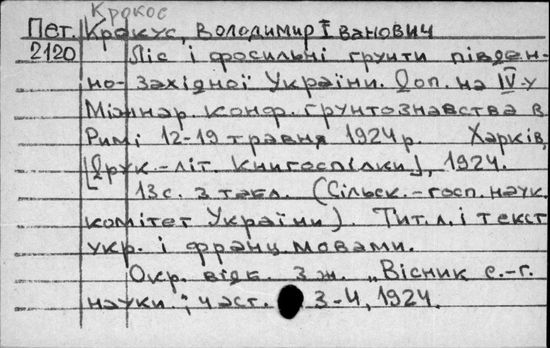 Крокос
Пет. Крокус, Володимир Іванович
2120 Ліс і фосильні ґрунти півден-
но-західної України. Доп. на IV-у
Міжнар. конф. ґрунтознавства в
Римі 12-19 травня 1924 р. Харків,
[Друк.-літ. Книгоспілки], 1924.
13 с. з табл. (Сільск.-госп. наук.
комітет України). Тит. л. і текст
укр. і франц. мовами.
Окр. відб. з ж. „Вісник с.-г.
науки"; част. 3-4, 1924.